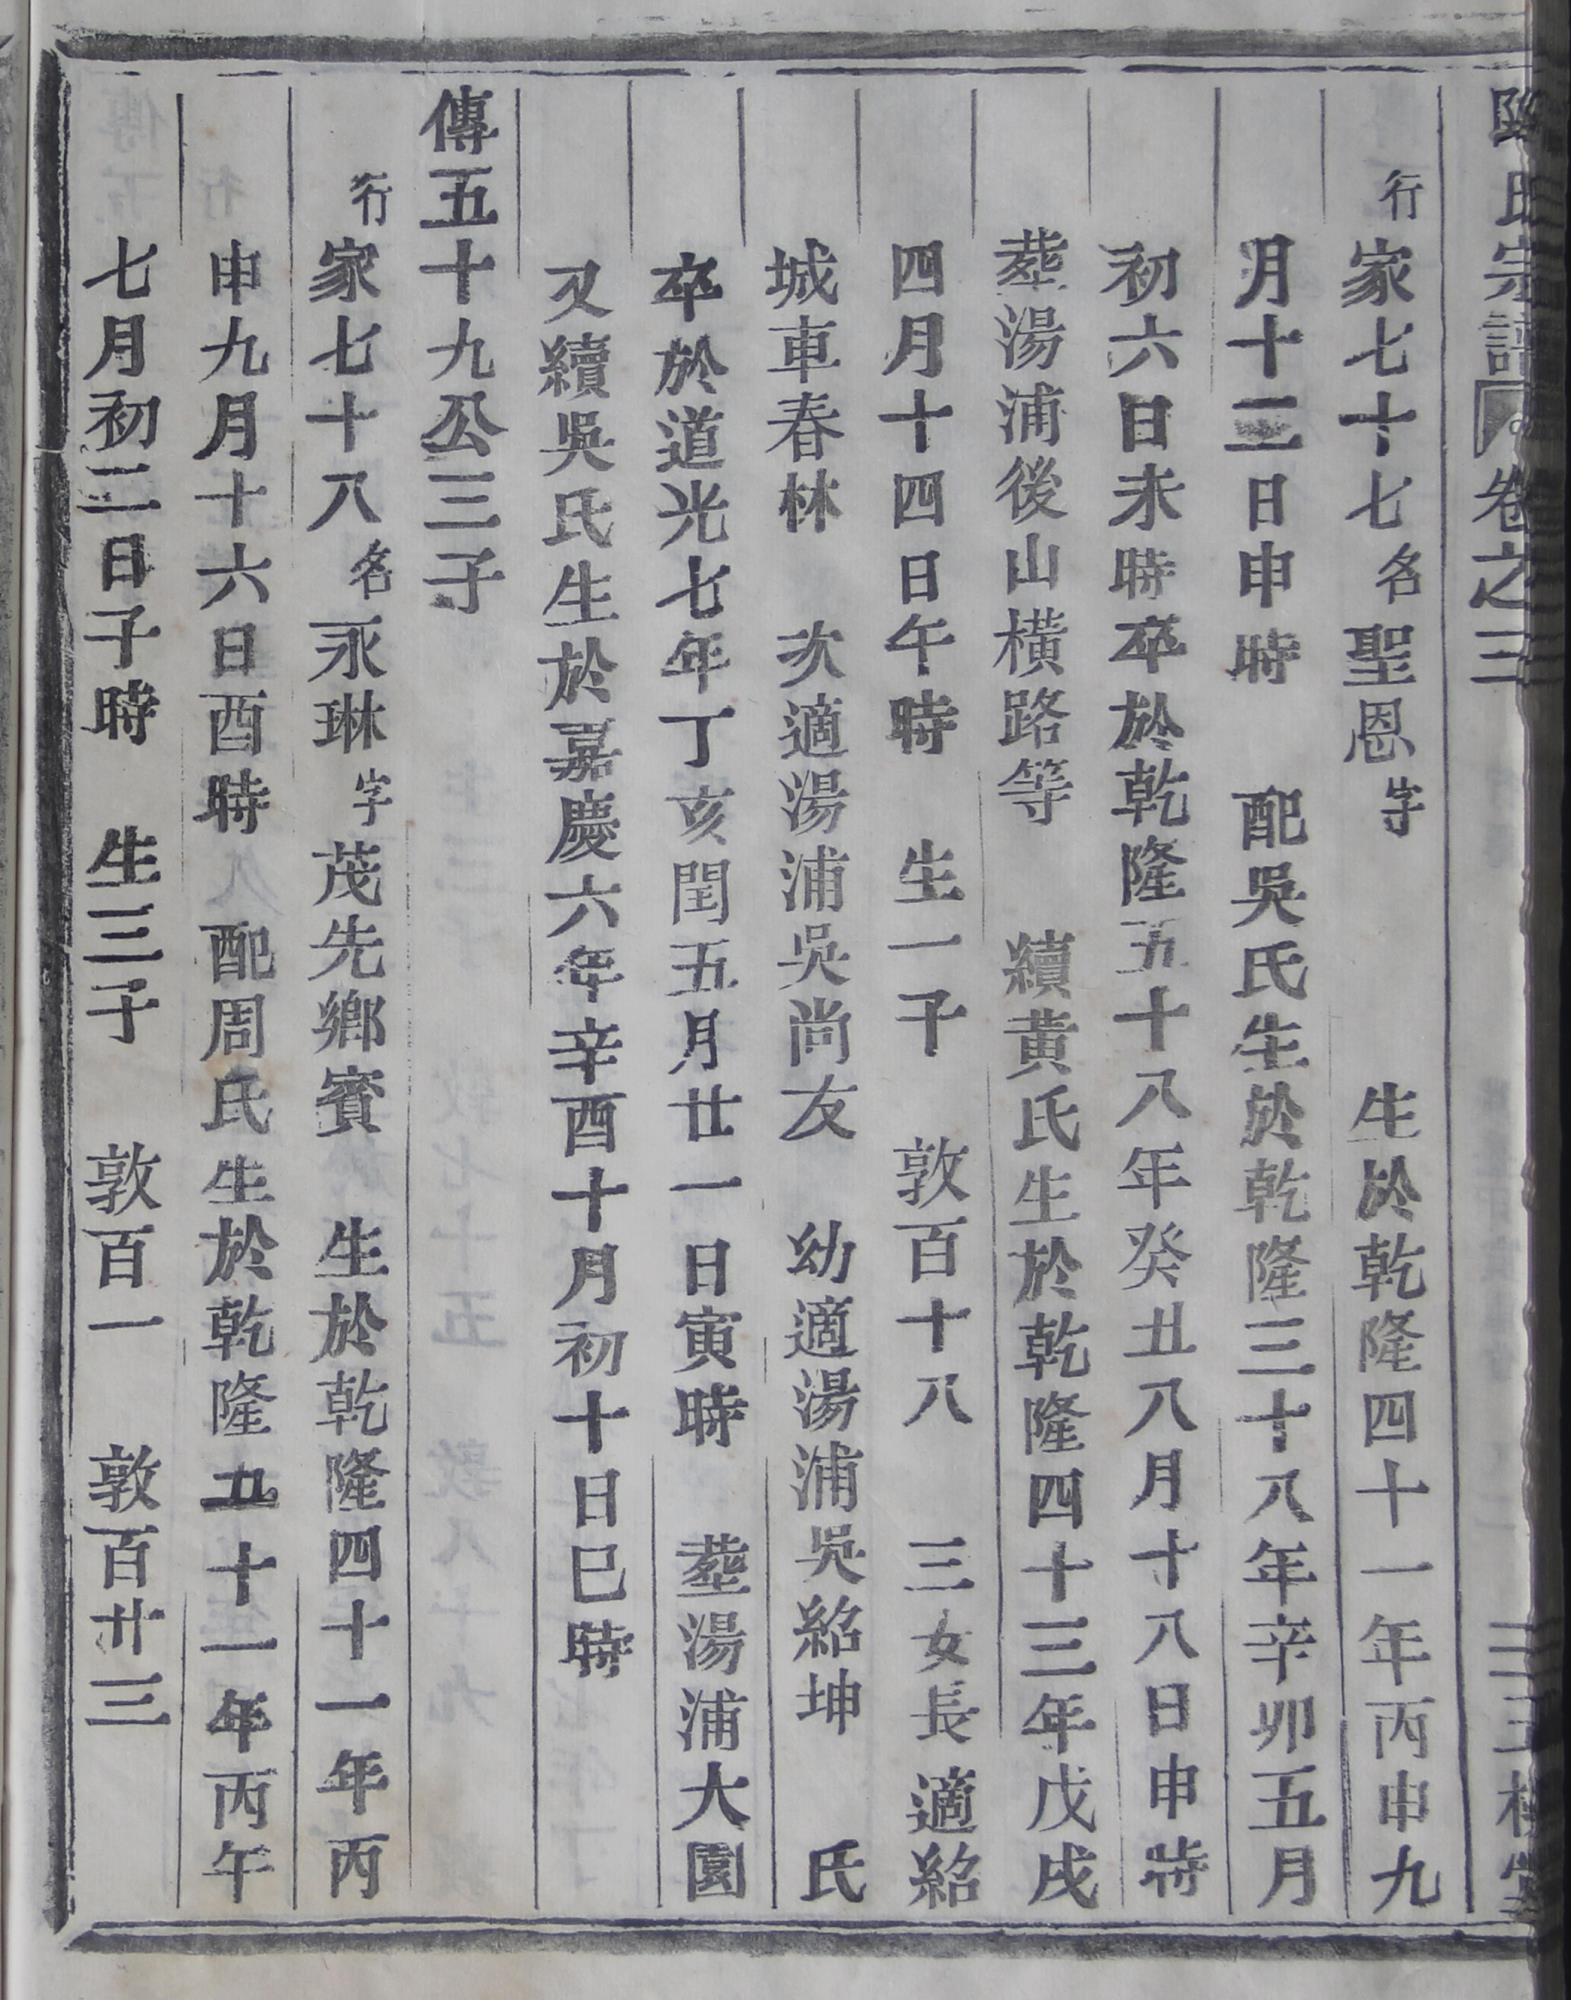 氏宗譜 卷之三
行家七十七名聖恩字 生於乾隆四十一年丙申九
月十三日申時 配吳氏生於乾隆三十八年辛卯五月
初六日未時卒於乾隆五十八年癸丑八月十八日申時
塟湯浦後山橫路等 續黃氏生於乾隆四十三年戊戌
四月十四日午時 生一子 敦百十八 三女長適紹
城車春林 次適湯浦吳尚友 幼適湯浦吳紹坤 氏
卒於道光七年丁亥閏五月廿一日寅時 塟湯浦大園
又續吳氏生於嘉慶六年辛酉十月初十日巳時
傳五十九公三子
行家七十八名永琳字茂先鄉賓 生於乾隆四十一年丙
申九月十六日酉時 配周氏生於乾隆五十一年丙午
七月初二日子時 生三子 敦百一 敦百廿三